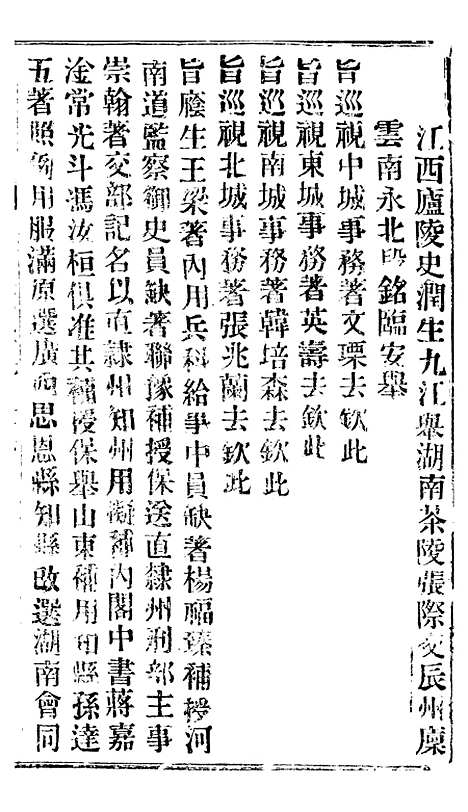 江西廬陵史潤生九江舉湖南茶陵張際交辰州廩
雲南永北段銘臨安舉
旨巡視中城事務著文瑮去欽此
旨巡視東城事務著英壽去欽此
旨巡視南城事務著韓培森去欽此
旨巡視北城事務著張兆蘭去欽此
旨廕生王梁著內用兵科給事中員缺著楊福臻補授河
南道監察御史員缺著聯豫補授保送直隸州刑部主事
崇翰著交部記名以直隸州知州用擬補內閣中書蔣嘉
淦常光斗馮汝桓俱准其補授保舉山東補用知縣孫達
五著照例用服滿原選廣西思恩縣知縣改選湖南會同